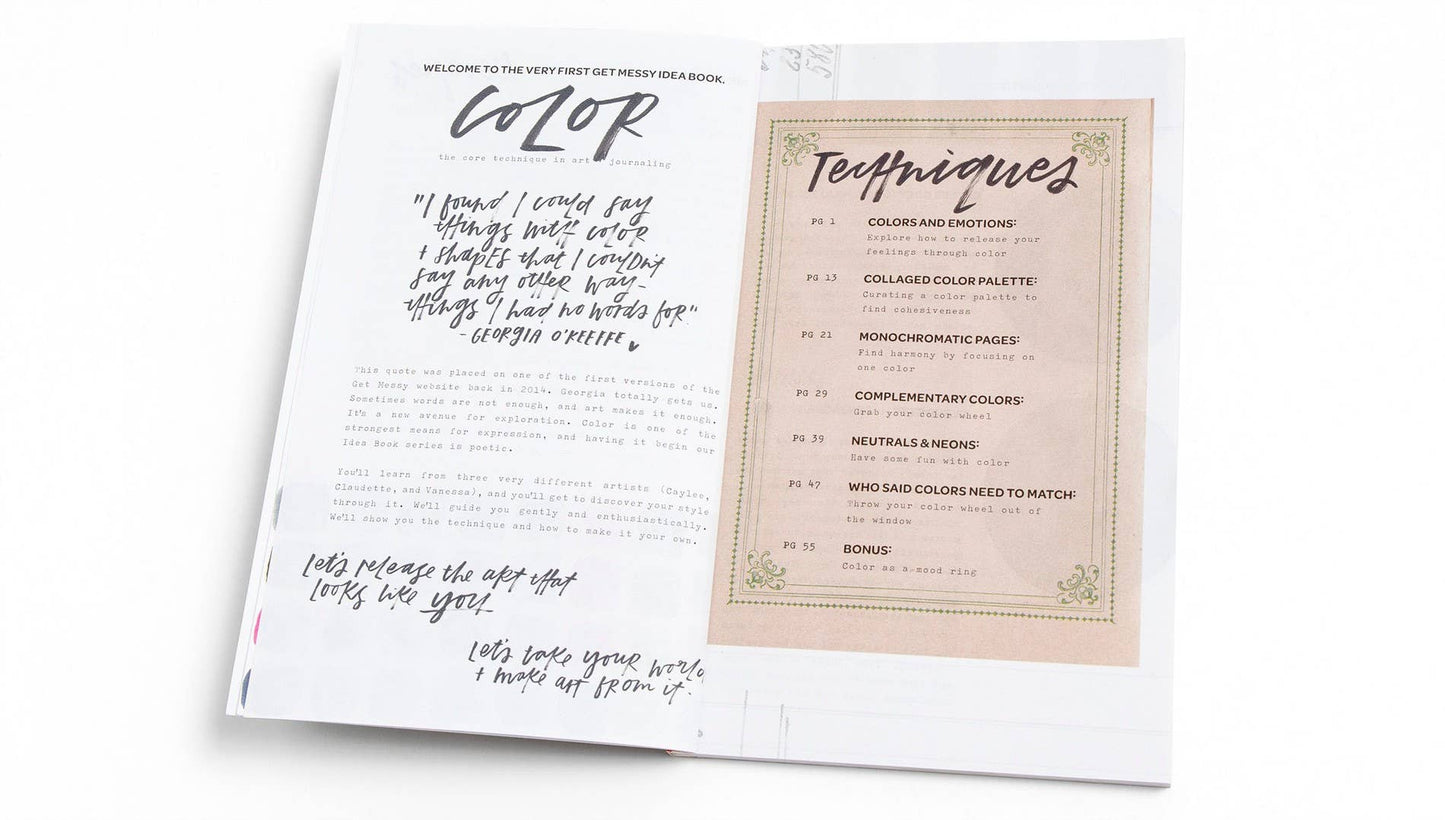 WELCOME TO THE VERY FIRST GET MESSY IDEA BOOK.
COLOR
the core technique in art journaling
"I found I could say
things with color
+ shapes that I couldn't
say any other way-
things I had no words for"
- GEORGIA O'KEEFFE
This quote was placed on one of the first versions of the
Get Messy website back in 2014. Georgia totally gets us.
Sometimes words are not enough, and art makes it enough.
It's a new avenue for exploration. Color is one of the
strongest means for expression, and having it begin our
Idea Book series is poetic.
You'll learn from three very different artists (Caylee,
Claudette, and Vanessa), and you'll get to discover your style
through it. We'll guide you gently and enthusiastically.
We'll show you the technique and how to make it your own.
Let's release the art that
looks like you
Let's take your world
+ make art from it.
Techniques
PG 1 COLORS AND EMOTIONS:
Explore how to release your
feelings through color
PG 13 COLLAGED COLOR PALETTE:
Curating a color palette to
find cohesiveness
PG 21 MONOCHROMATIC PAGES:
Find harmony by focusing on
one color
PG 29 COMPLEMENTARY COLORS:
Grab your color wheel
PG 39 NEUTRALS & NEONS:
Have some fun with color
PG 47 WHO SAID COLORS NEED TO MATCH:
Throw your color wheel out of
the window
PG 55 BONUS:
Color as a mood ring